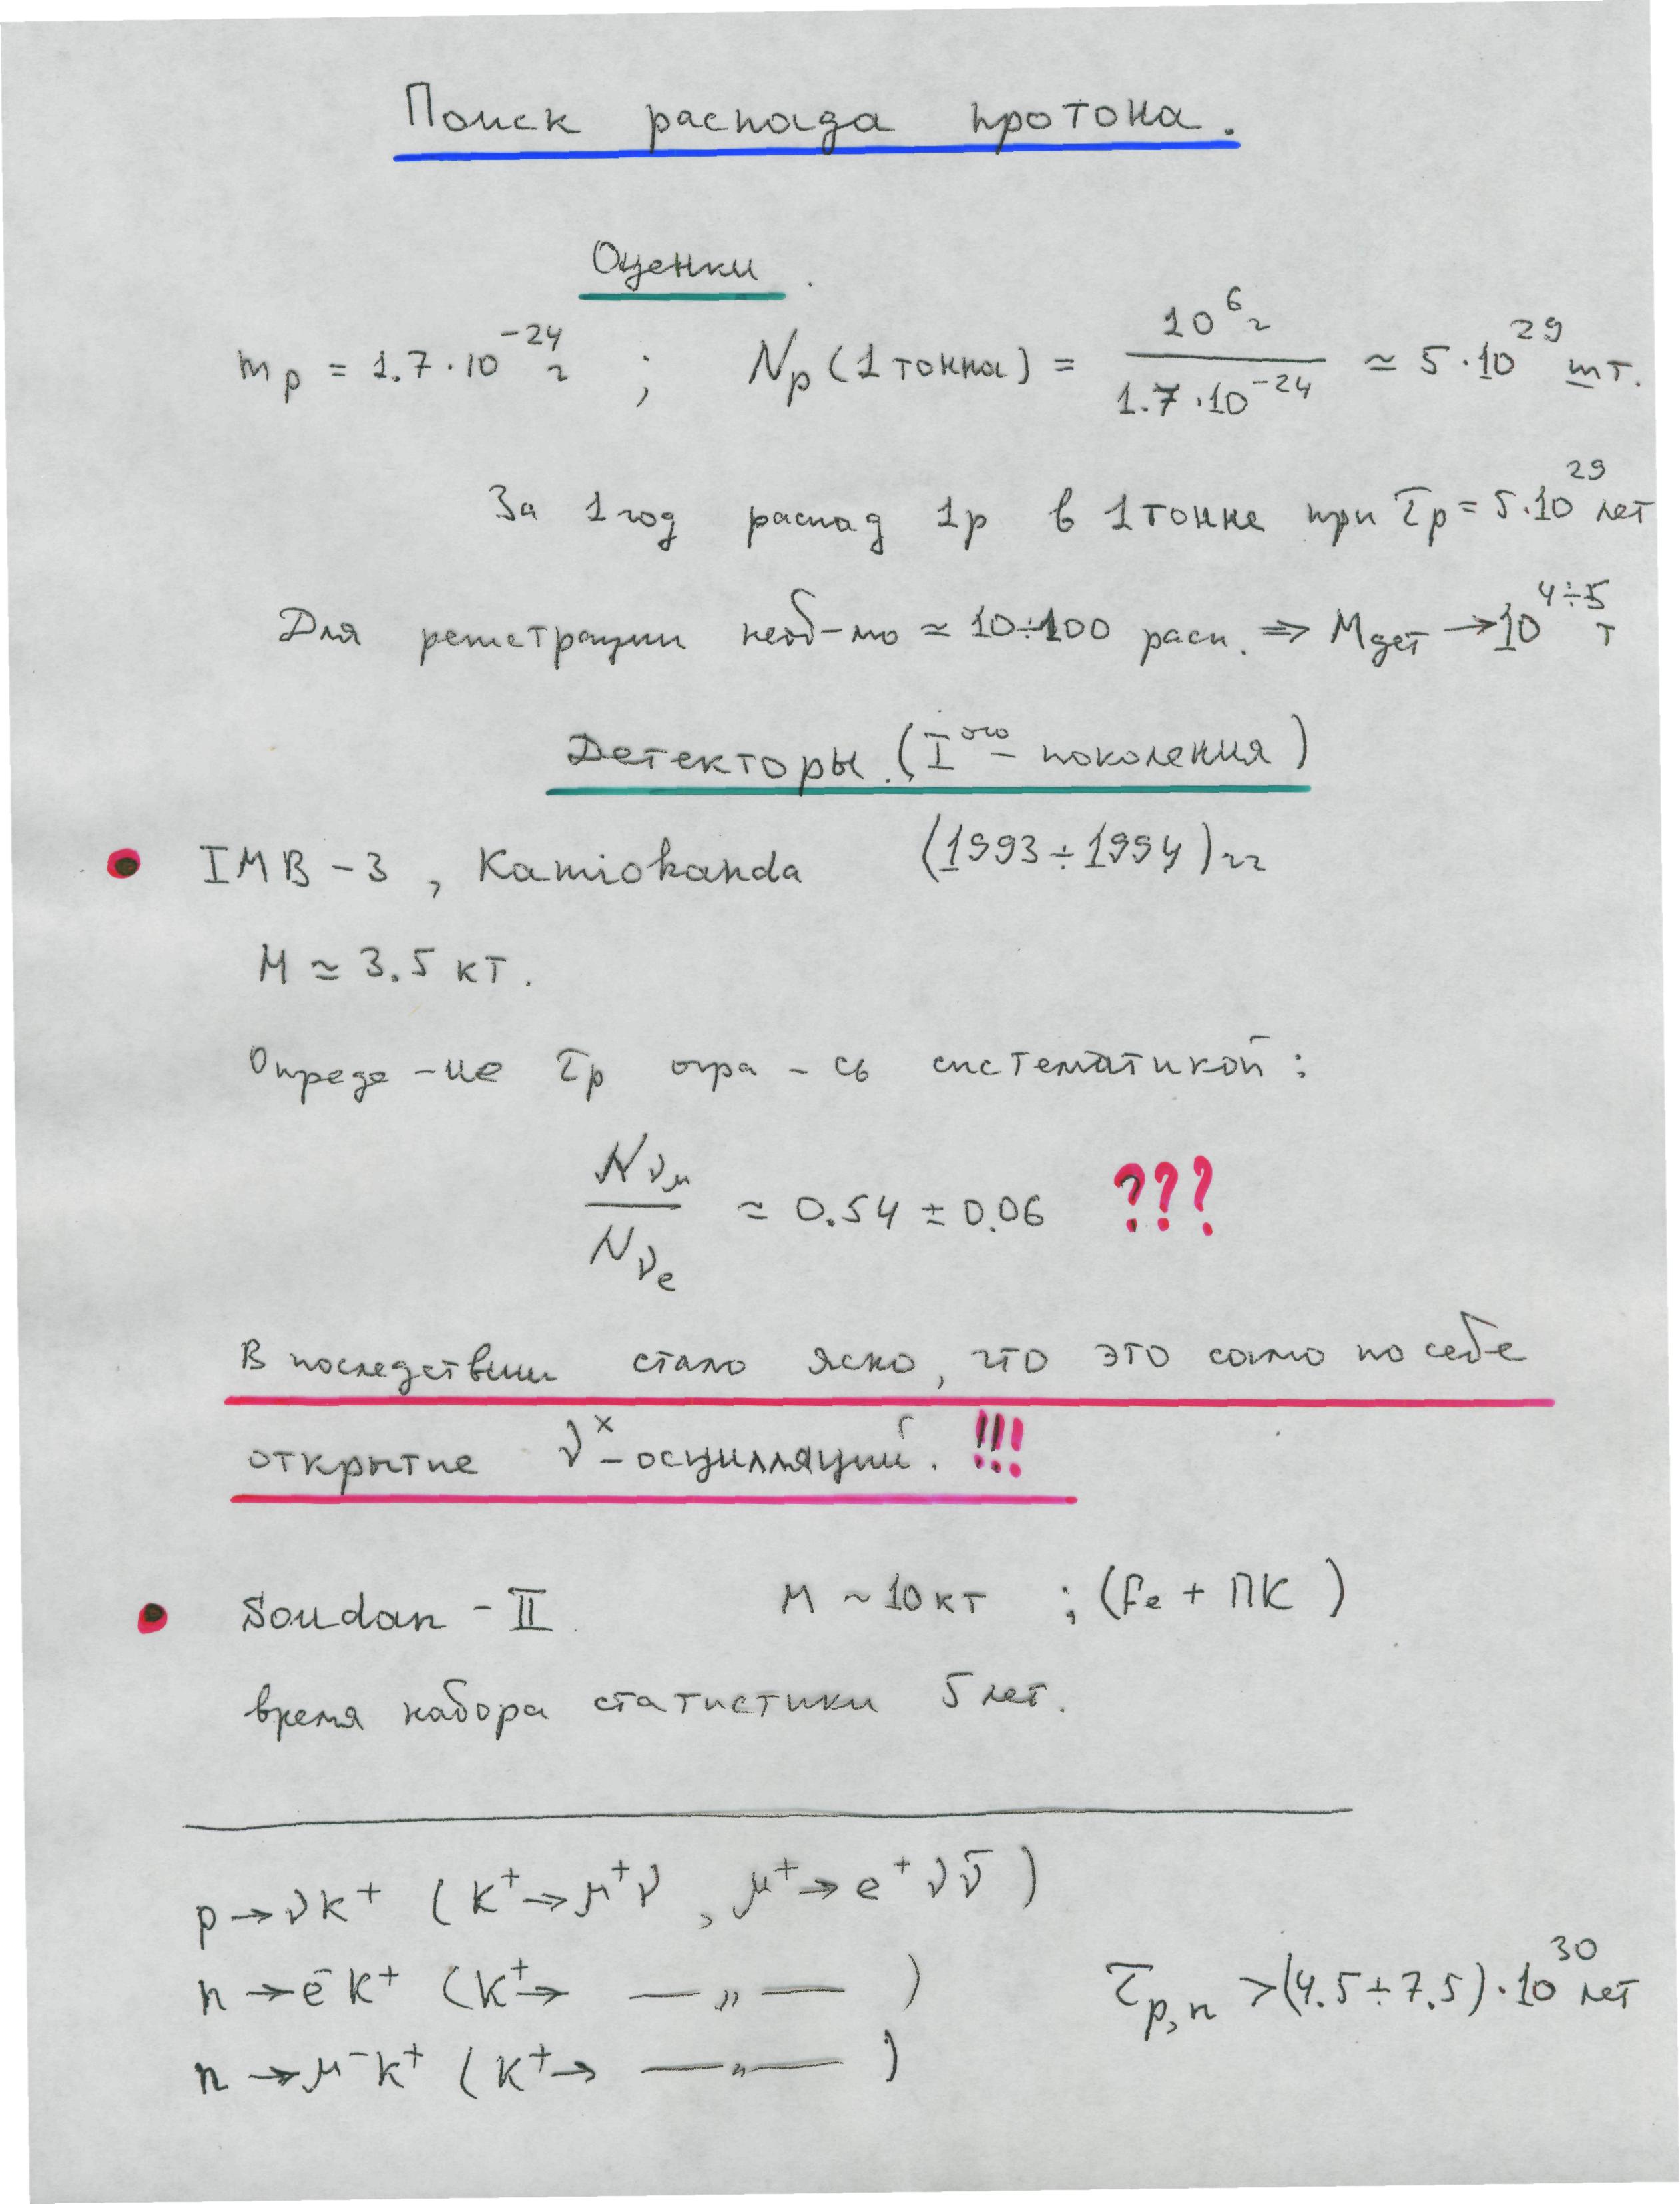 Поиск распада протона.
Оценки.
m_p = 1.7·10^-24 г ; N_p (1 тонна) = 10^6 г / 1.7·10^-24 ≃ 5·10^29 шт.
За 1 год распад 1p в 1 тонне при τ_p = 5·10^29 лет
Для регистрации необ-мо ≃ 10÷100 расп. ⇒ M_дет → 10^4÷5 т
Детекторы. (I^ого - поколения)
IMB-3, Kamiokanda (1993÷1994) гг
M ≃ 3.5 кт.
Опреде-ие τ_p огра-сь систематикой:
N_ν_μ / N_ν_e ≃ 0.54 ± 0.06 ???
В последствии стало ясно, что это само по себе
открытие ν^x-осцилляций. !!!
Soudan - II M ~ 10 кт ; (Fe + ПК)
время набора статистики 5 лет.
p → νk⁺ (K⁺ → μ⁺ν, μ⁺ → e⁺νν̄)
n → e⁻k⁺ (K⁺ → —„—)
τ_p,n > (4.5÷7.5)·10^30 лет
n → μ⁻k⁺ (K⁺ → —„—)